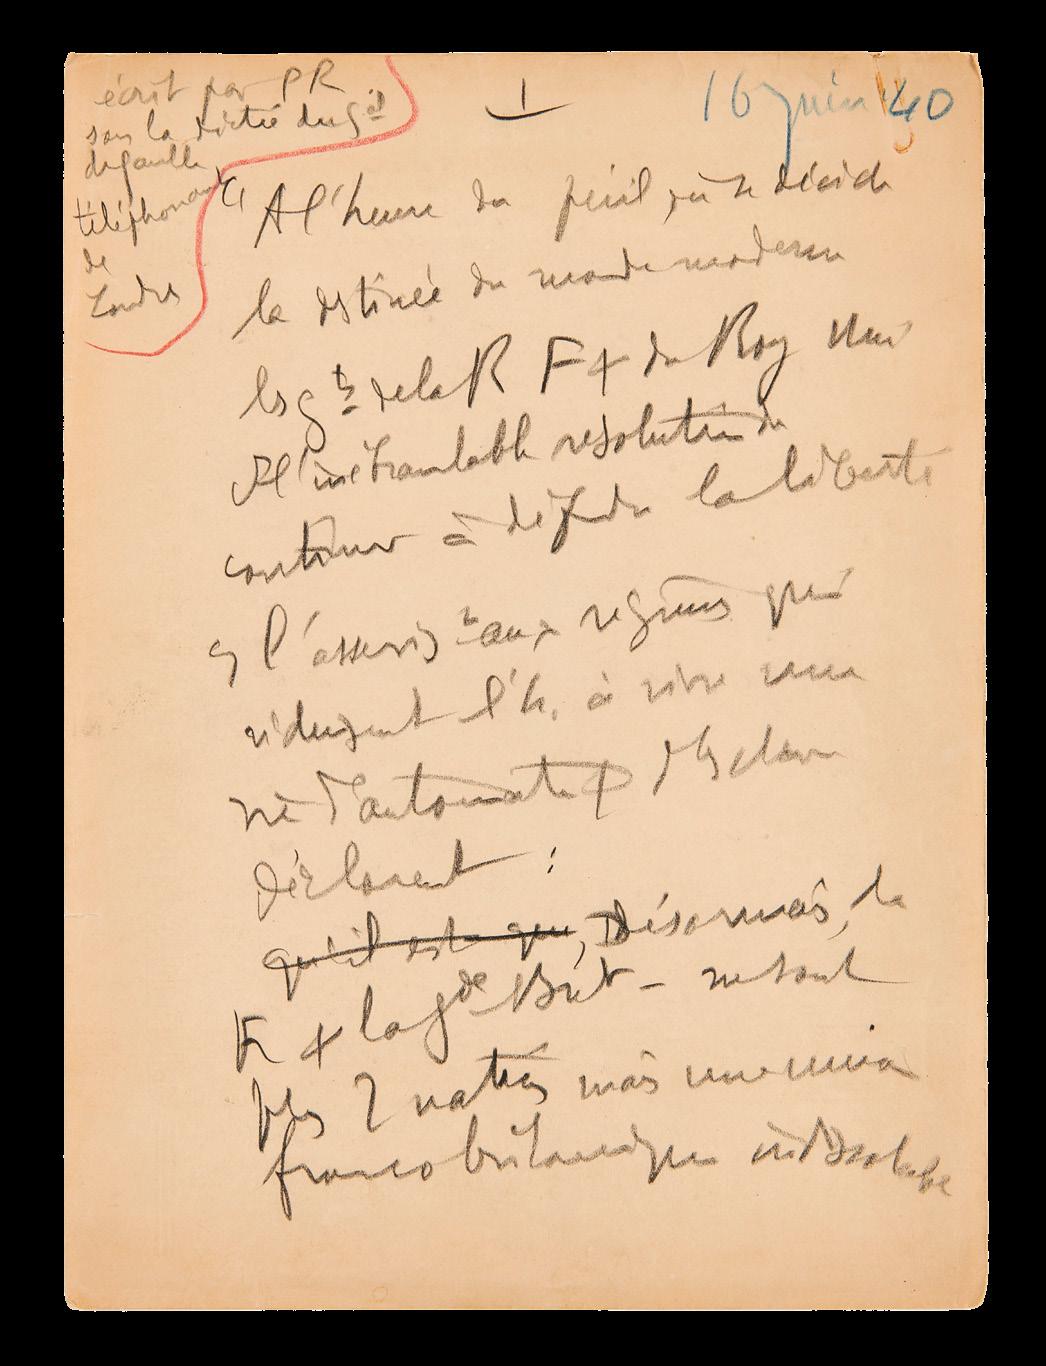 écrit par PR
sous la dictée du Gal
de Gaulle
téléphonant
de
Londres
I
16 juin 40
" A l'heure du péril où se décide
la destinée du monde moderne
les gts de la R F + du Roy Uni
ds l'inébranlable résolution de
continuer à défendre la liberté
c/ l'asservist aux régimes qui
réduisent l'h. à vivre une
vie d'automate + d'esclave
déclarent :
qu'il est que, Désormais, la
F + la gde Bret – ne sont
plus 2 nations mais une union
franco britannique indissoluble